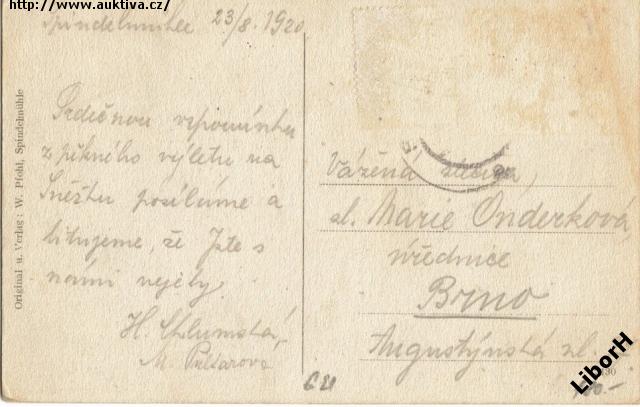 http://www.auktiva.cz/
Spindelmühle 23/8. 1920
Srdečnou vzpomínku
z pěkného výletu na
Sněžku posíláme a
litujeme, že Jste s
námi nejely.
H. Chlumská,
M. Pultarova
Original u. Verlag: W. Pfohl, Spindelmühle
Vážená slečna,
sl. Marie Onderkova,
úřednice
Brno
Augustýnská ul.
LiborH